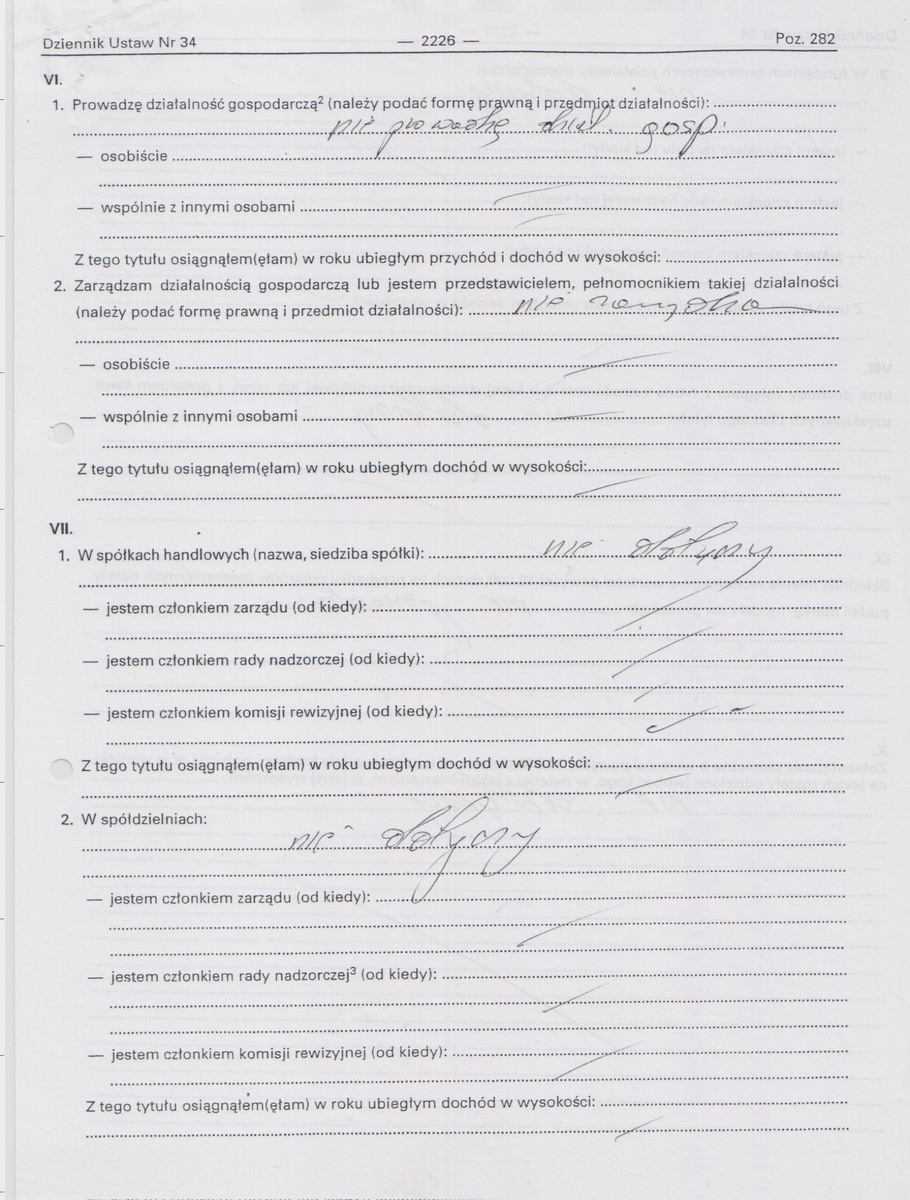 Dziennik Ustaw Nr 34 — 2226 — Poz. 282
VI.
1. Prowadzę działalność gospodarczą² (należy podać formę prawną i przedmiot działalności):
nie prowadzę dział. gosp.
— osobiście
— wspólnie z innymi osobami
Z tego tytułu osiągnąłem(ęłam) w roku ubiegłym przychód i dochód w wysokości:
2. Zarządzam działalnością gospodarczą lub jestem przedstawicielem, pełnomocnikiem takiej działalności
(należy podać formę prawną i przedmiot działalności): nie
— osobiście
— wspólnie z innymi osobami
Z tego tytułu osiągnąłem(ęłam) w roku ubiegłym dochód w wysokości:
VII.
1. W spółkach handlowych (nazwa, siedziba spółki): nie dotyczy
— jestem członkiem zarządu (od kiedy):
— jestem członkiem rady nadzorczej (od kiedy):
— jestem członkiem komisji rewizyjnej (od kiedy):
Z tego tytułu osiągnąłem(ęłam) w roku ubiegłym dochód w wysokości:
2. W spółdzielniach:
nie dotyczy
— jestem członkiem zarządu (od kiedy):
— jestem członkiem rady nadzorczej³ (od kiedy):
— jestem członkiem komisji rewizyjnej (od kiedy):
Z tego tytułu osiągnąłem(ęłam) w roku ubiegłym dochód w wysokości: